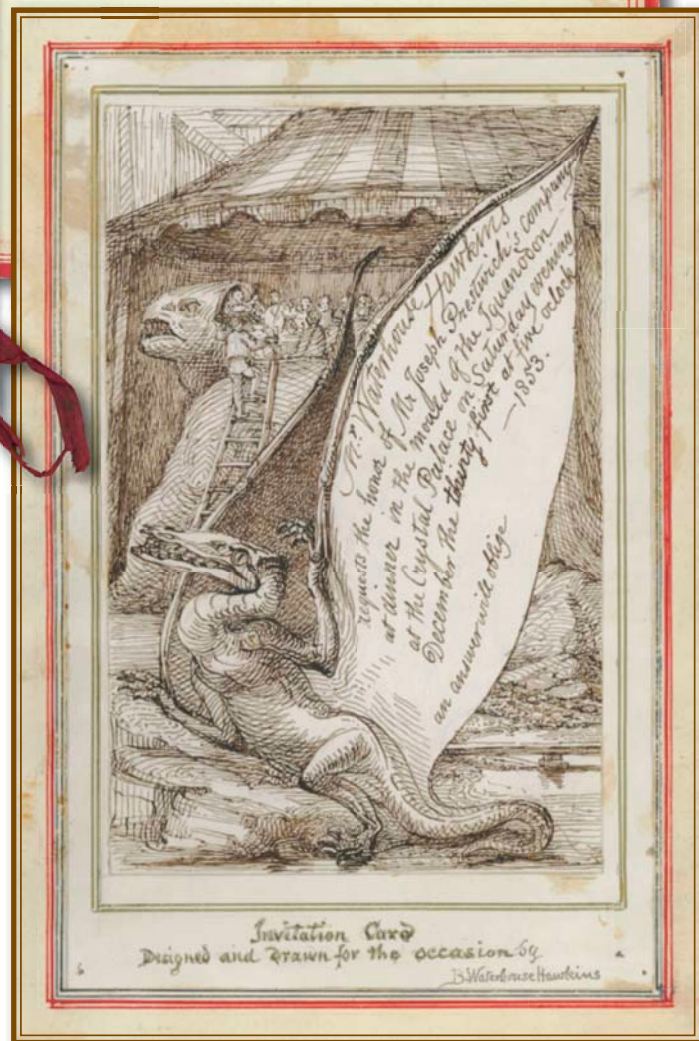 Mr. Waterhouse Hawkins
requests the honor of Mr Joseph Prestwich's company
at dinner in the mould of the Iguanodon
at the Crystal Palace on Saturday evening
December the thirty first at five oclock
—1853.
an answer will oblige
Invitation Card
Designed and Drawn for the occasion by
B. Waterhouse Hawkins